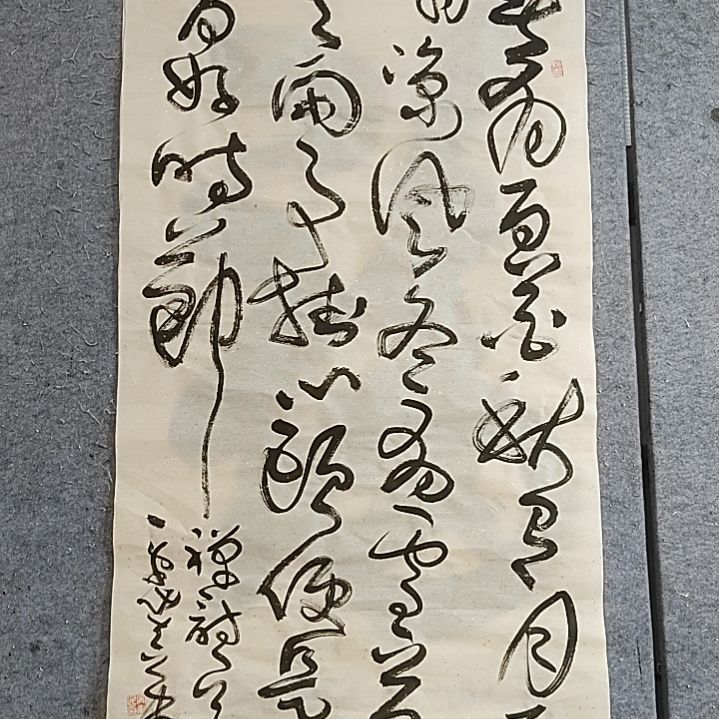 春有百花秋有月
有涼風冬有雪若
無閑事挂心頭便是
間好時節
禪詩